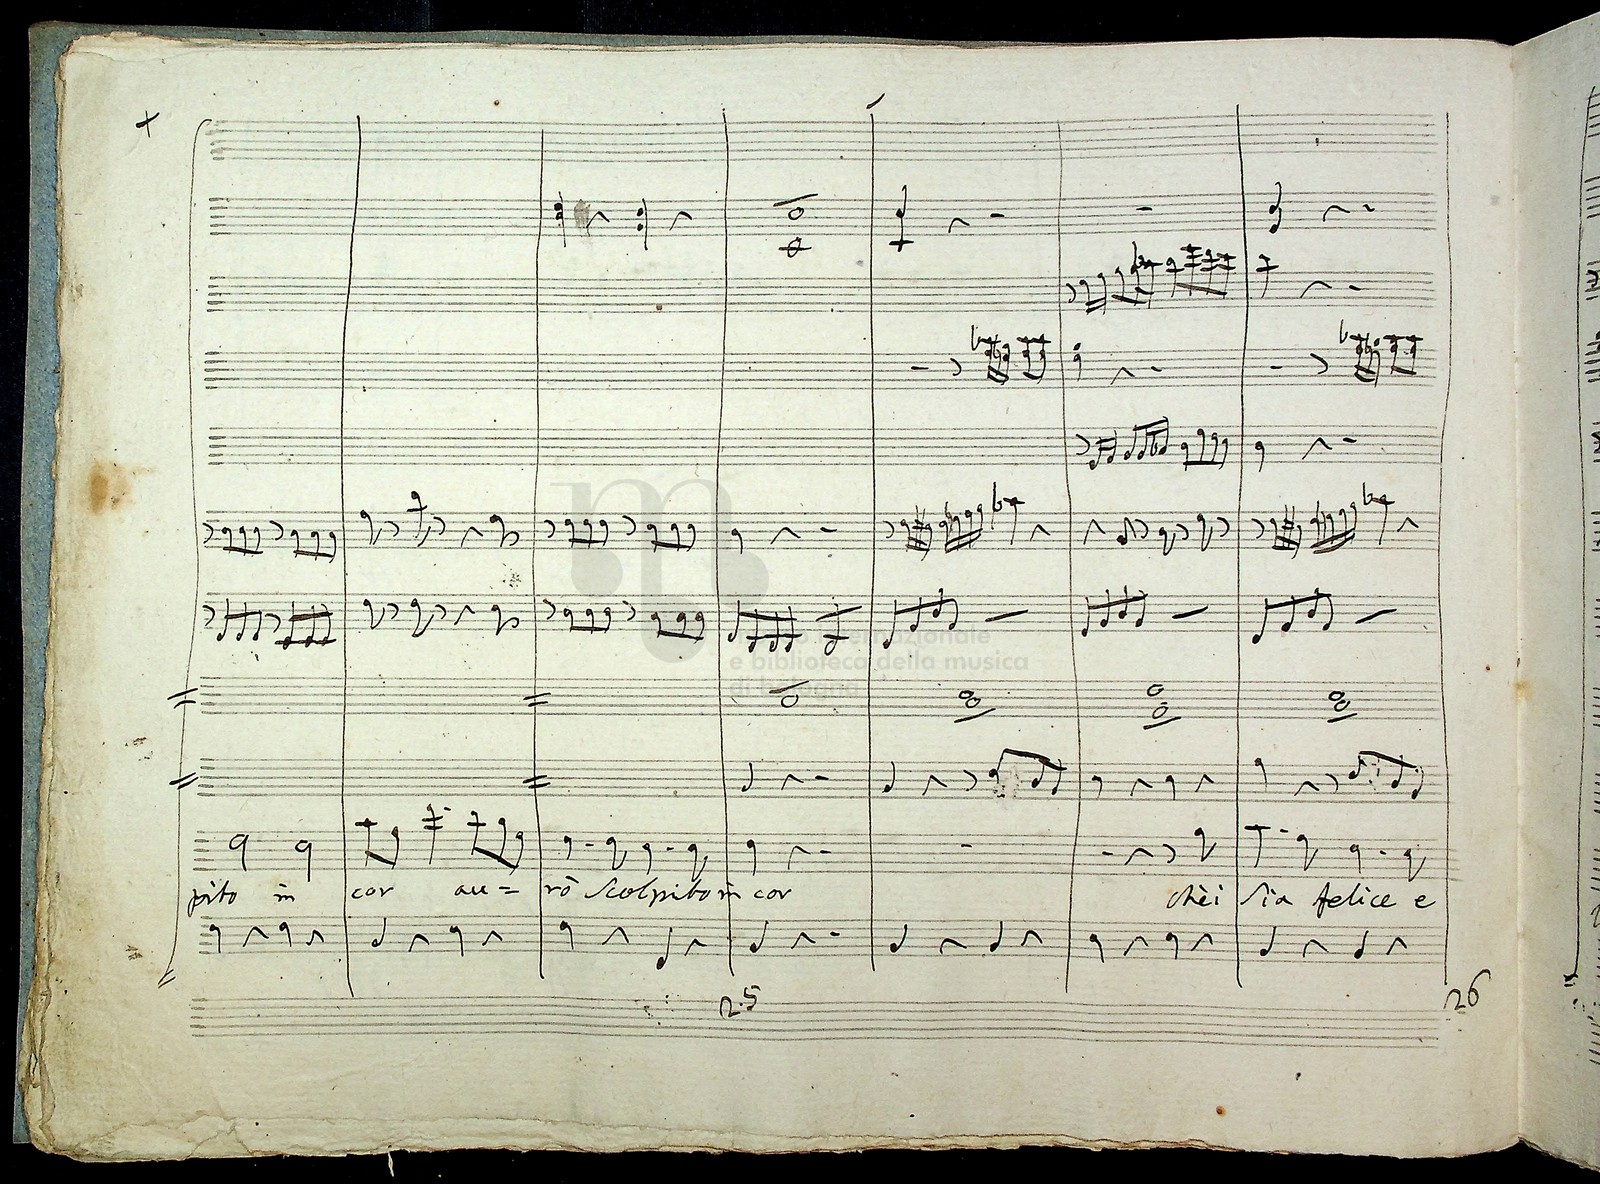 pito in cor au= rò Scolpito in cor chèi Sia felice e
25 26
museo internazionale
e biblioteca della musica
di bologna